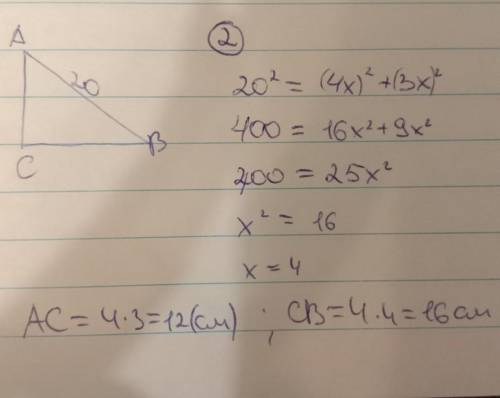 ②
A
20
C
B
20² = (4x)² + (3x)²
400 = 16x² + 9x²
400 = 25x²
x² = 16
x = 4
AC = 4·3 = 12(см) ; CB = 4·4 = 16 см